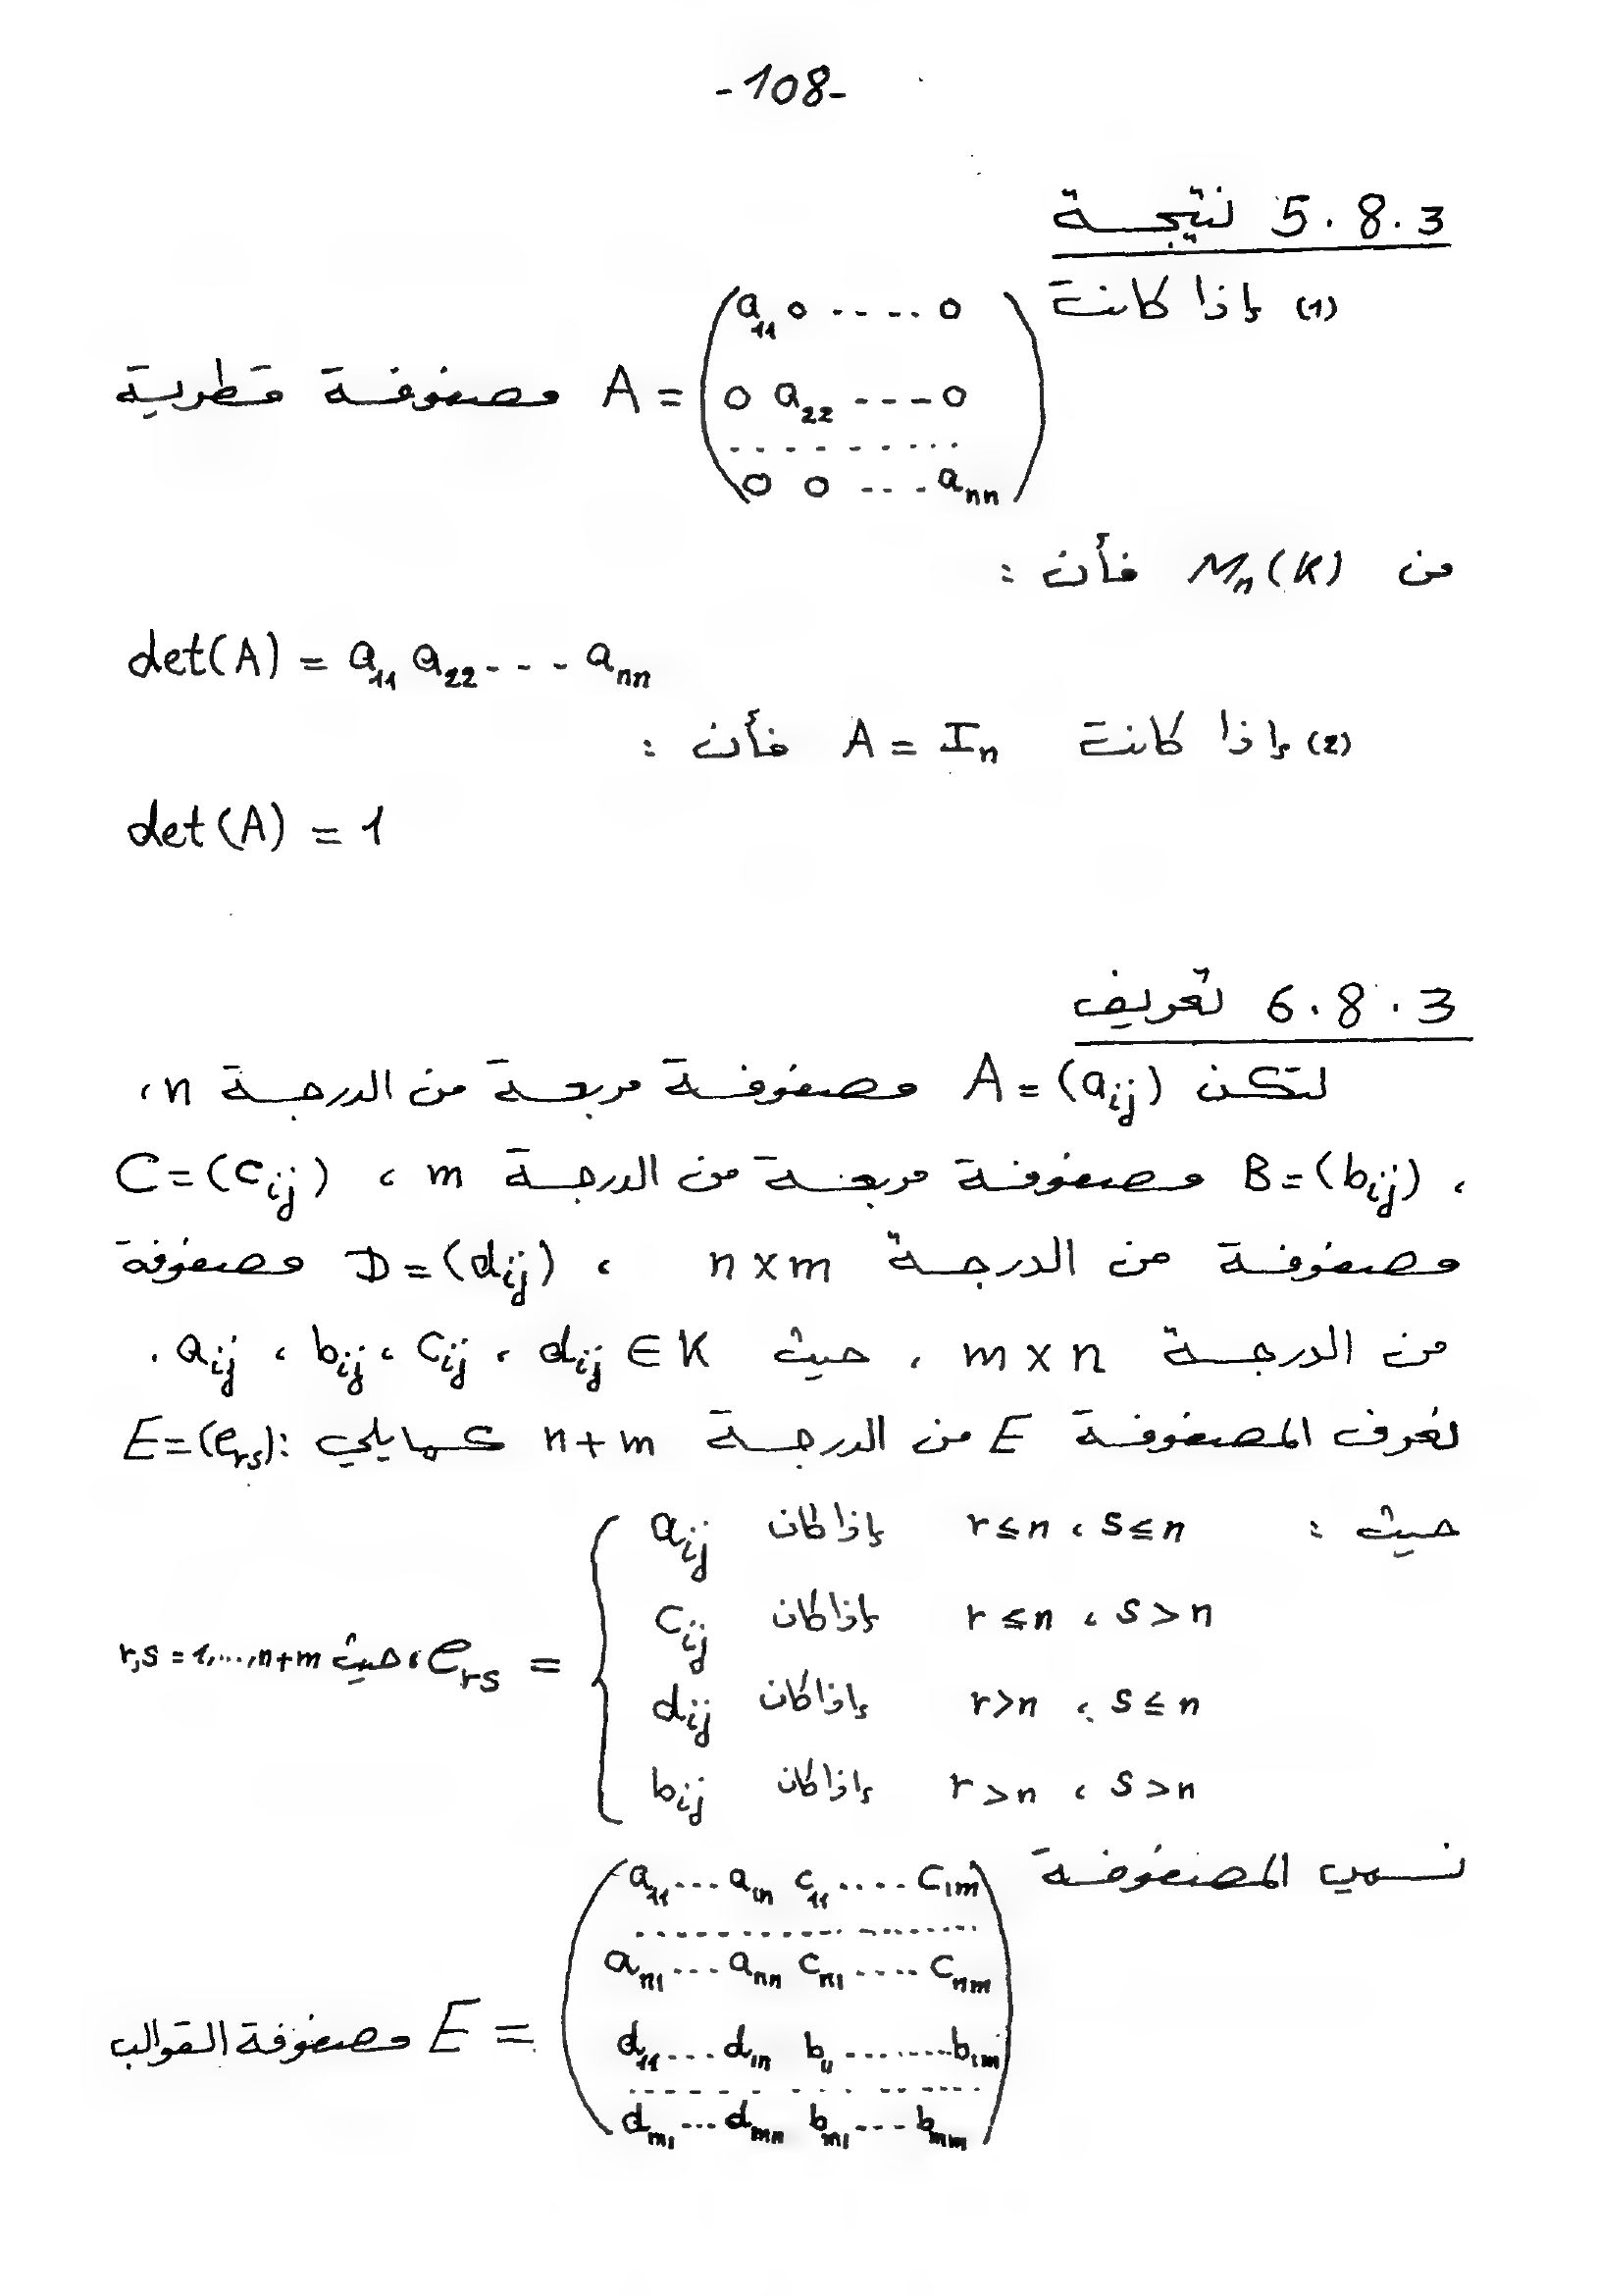 -108-
5.8.3 نتيجة
(1) إذا كانت
A = \begin{pmatrix} a_{11} & 0 & .... & 0 \\ 0 & a_{22} & .... & 0 \\ .... \\ 0 & 0 & ... & a_{nn} \end{pmatrix} مصفوفة قطرية
من M_n(K) فأن :
det(A) = a_{11} a_{22} .... a_{nn}
(2) إذا كانت A = I_n فأن :
det(A) = 1
6.8.3 تعريف
لتكن A = (a_{ij}) مصفوفة مربعة من الدرجة n،
، B = (b_{ij}) مصفوفة مربعة من الدرجة m ، C = (c_{ij})
مصفوفة من الدرجة n × m ، D = (d_{ij}) مصفوفة
من الدرجة m × n ، حيث a_{ij} ، b_{ij} ، c_{ij} ، d_{ij} ∈ K .
نعرف المصفوفة E من الدرجة n + m كمايلي : E = (e_{rs})
حيث :
e_{rs} = \begin{cases} a_{ij} & إذا كان & r ≤ n ، s ≤ n \\ c_{ij} & إذا كان & r ≤ n ، s > n \\ d_{ij} & إذا كان & r > n ، s ≤ n \\ b_{ij} & إذا كان & r > n ، s > n \end{cases} ، حيث r,s = 1,...,n+m
نسمي المصفوفة
E = \begin{pmatrix} a_{11} & ... & a_{1n} & c_{11} & .... & c_{1m} \\ .... \\ a_{n1} & ... & a_{nn} & c_{n1} & .... & c_{nm} \\ d_{11} & .... & d_{1n} & b_{11} & .... & b_{1m} \\ .... \\ d_{m1} & ... & d_{mn} & b_{m1} & .... & b_{mm} \end{pmatrix} مصفوفة القوالب